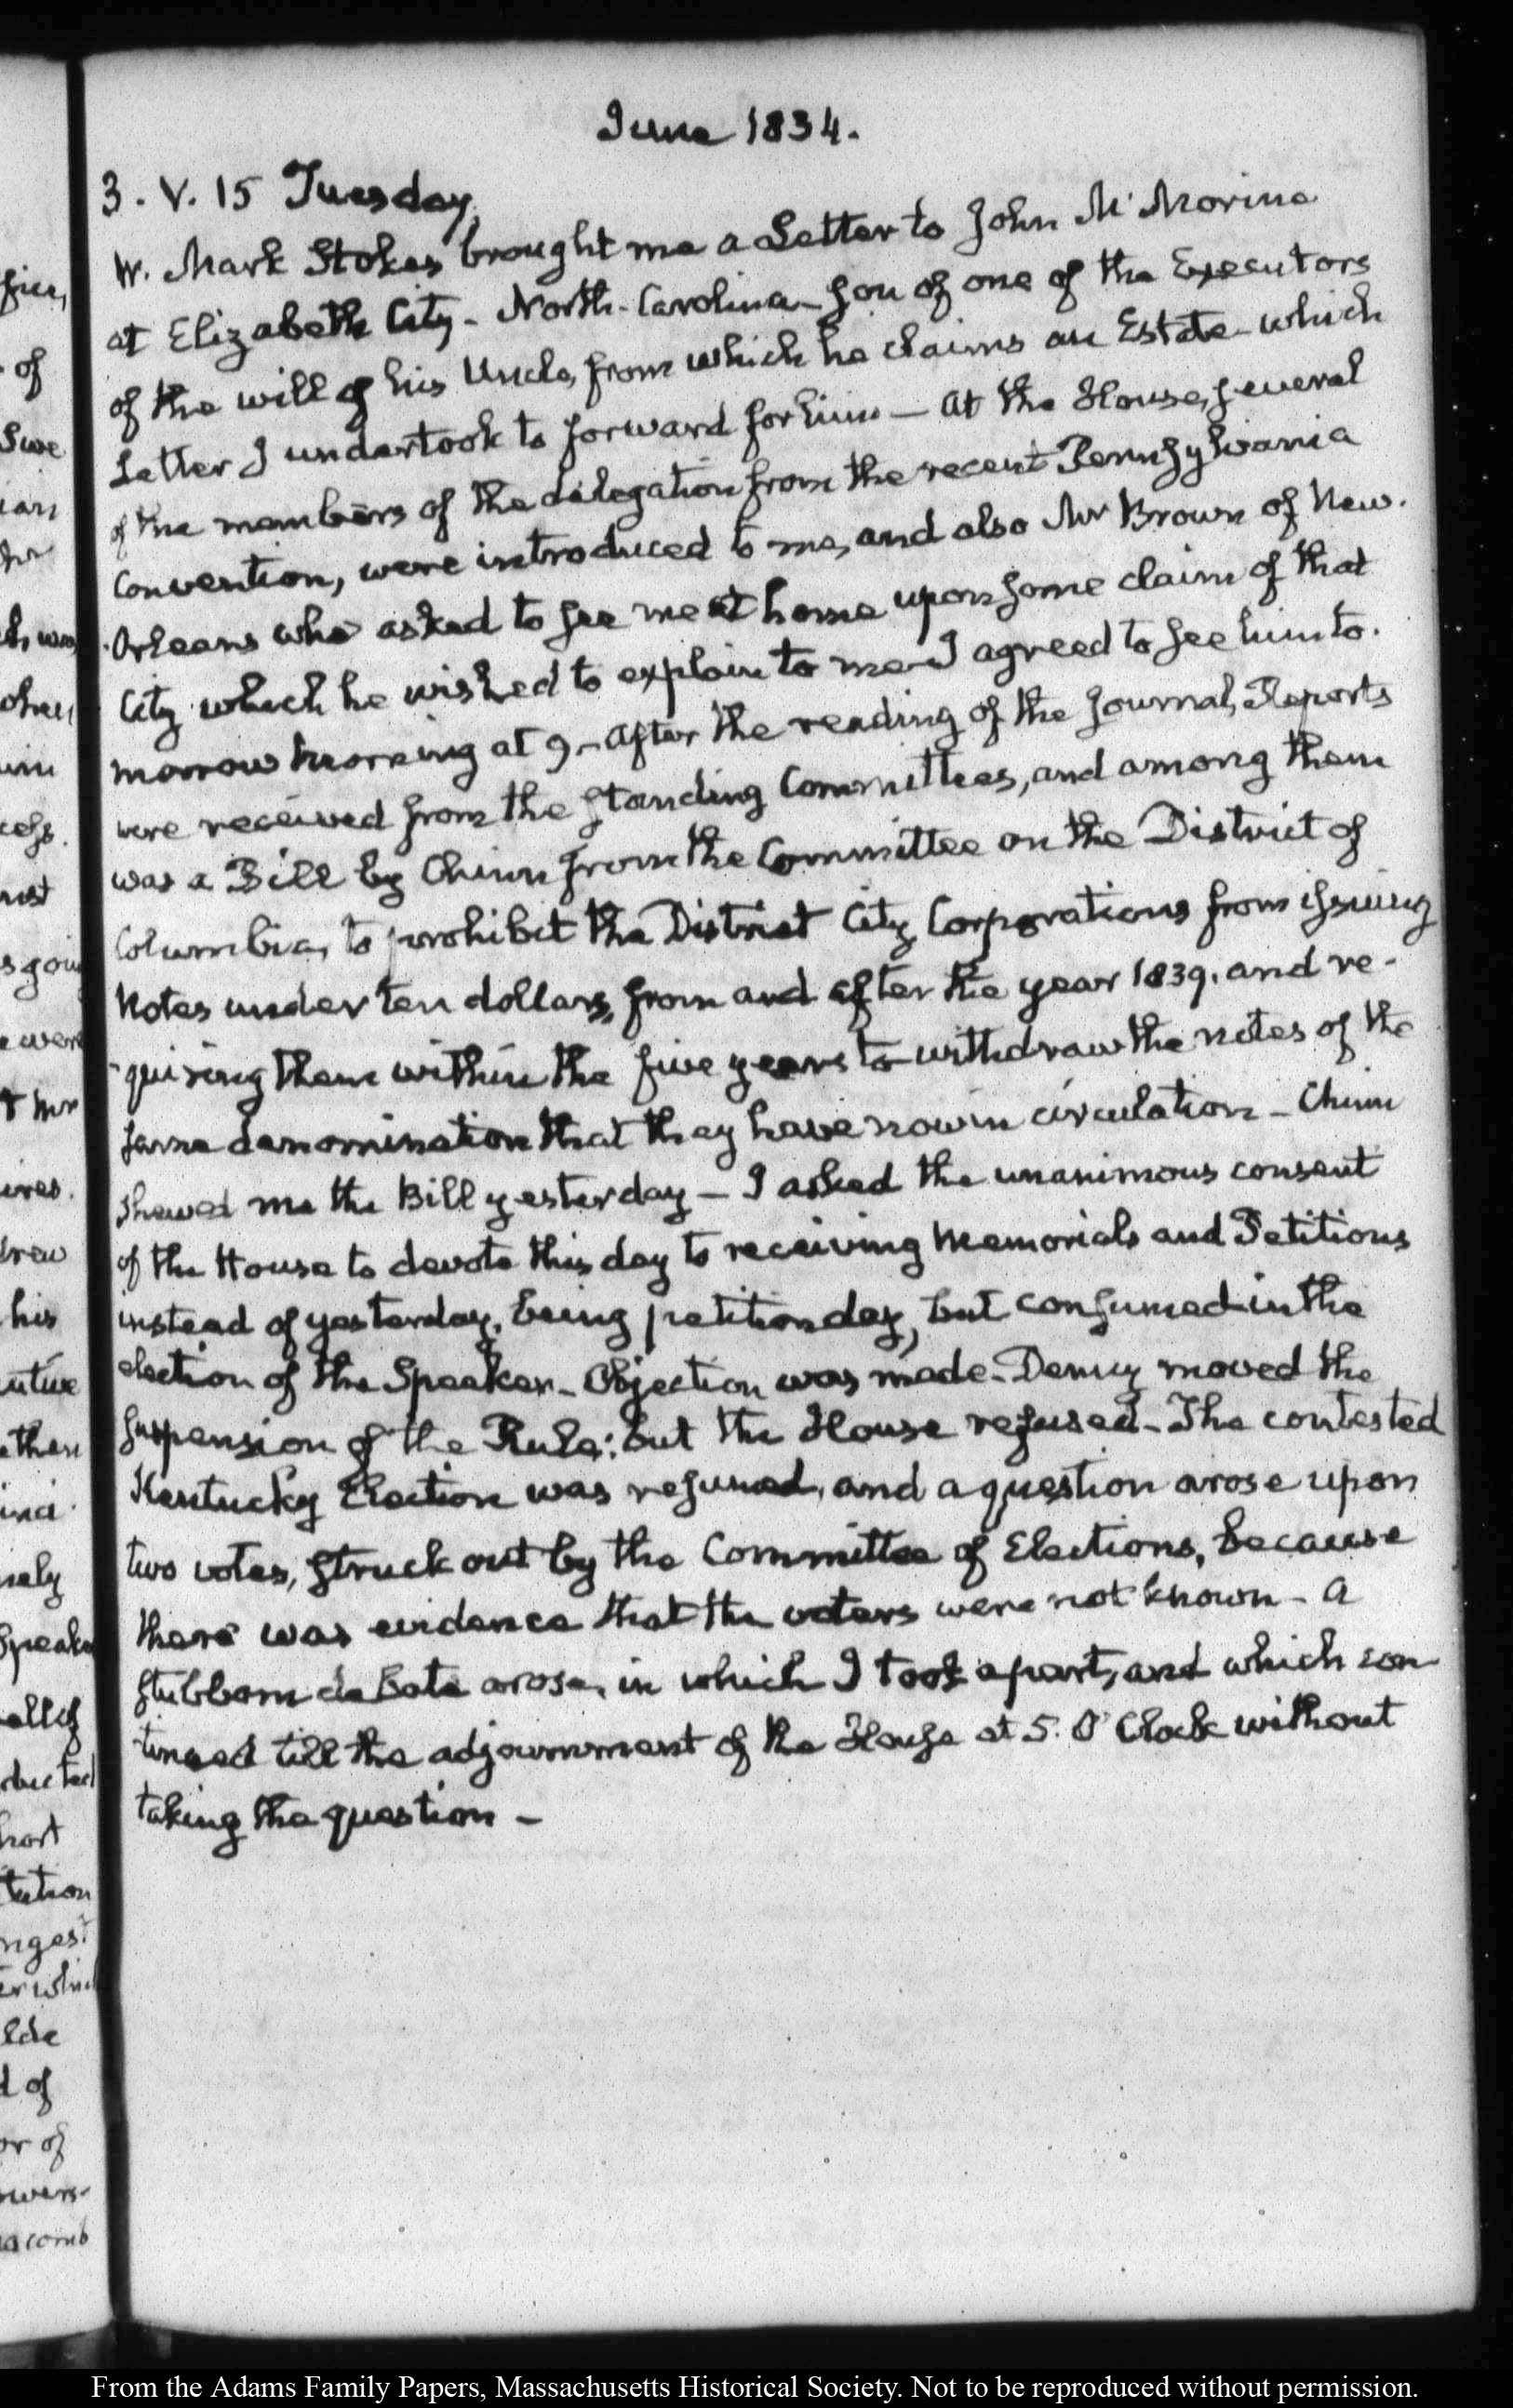 June 1834.
3. V. 15 Tuesday,
W. Mark Stokes brought me a Letter to John McMorine
at Elizabeth City - North-Carolina - son of one of the Executors
of the will of his Uncle, from which he claims an Estate - which
Letter I undertook to forward for him — At the House, several
of the members of the delegation from the recent Pennsylvania
Convention, were introduced to me, and also Mr Brown of New-
Orleans who asked to see me at home upon some claim of that
City which he wished to explain to me - I agreed to see him to-
morrow morning at 9 - After the reading of the Journal, Reports
were received from the standing Committees, and among them
was a Bill by Chinn from the Committee on the District of
Columbia, to prohibit the District City Corporations from issuing
Notes under ten dollars, from and after the year 1839. and re-
-quiring them within the five years to withdraw the notes of the
same denomination that they have now in circulation - Chinn
shewed me the Bill yesterday — I asked the unanimous consent
of the House to devote this day to receiving Memorials and Petitions
instead of yesterday, being petition day, but consumed in the
election of the Speaker - Objection was made - Denny moved the
suspension of the Rule; but the House refused - The contested
Kentucky Election was resumed, and a question arose upon
two votes, struck out by the Committee of Elections, because
there was evidence that the voters were not known - A
stubborn debate arose, in which I took a part, and which con
tinued till the adjournment of the House at 5. O'Clock without
taking the question -
From the Adams Family Papers, Massachusetts Historical Society. Not to be reproduced without permission.